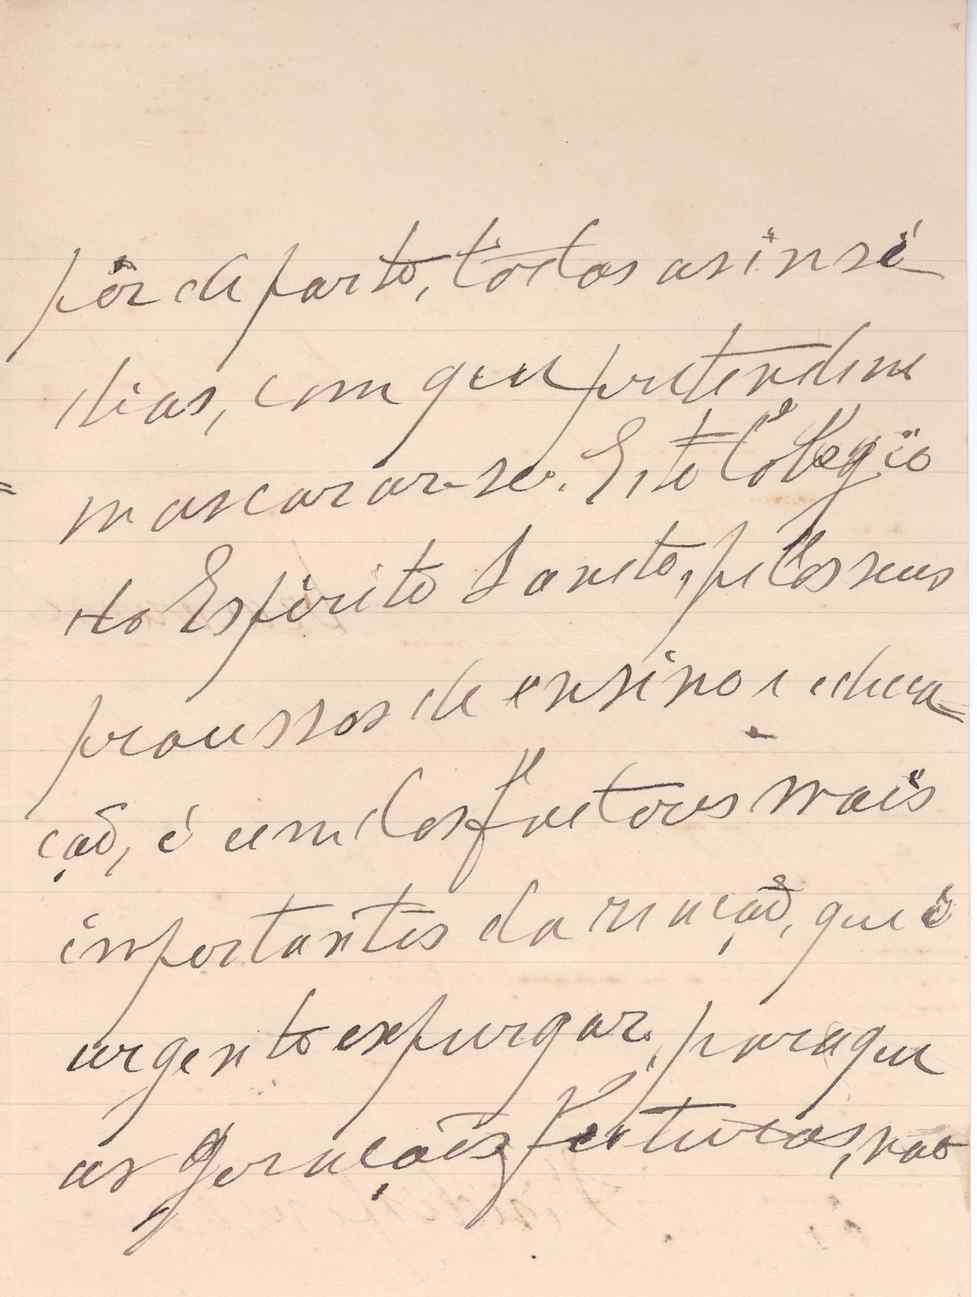 pôr de parte, todas as insi
dias, com que pretendem
mascarar-se. Este Colegio
do Espirito Santo, pelos seus
processos de ensino e educa=
ção, é um dos factores mais
importantes da reacção, que é
urgente expurgar, para que
as gerações futuras, não